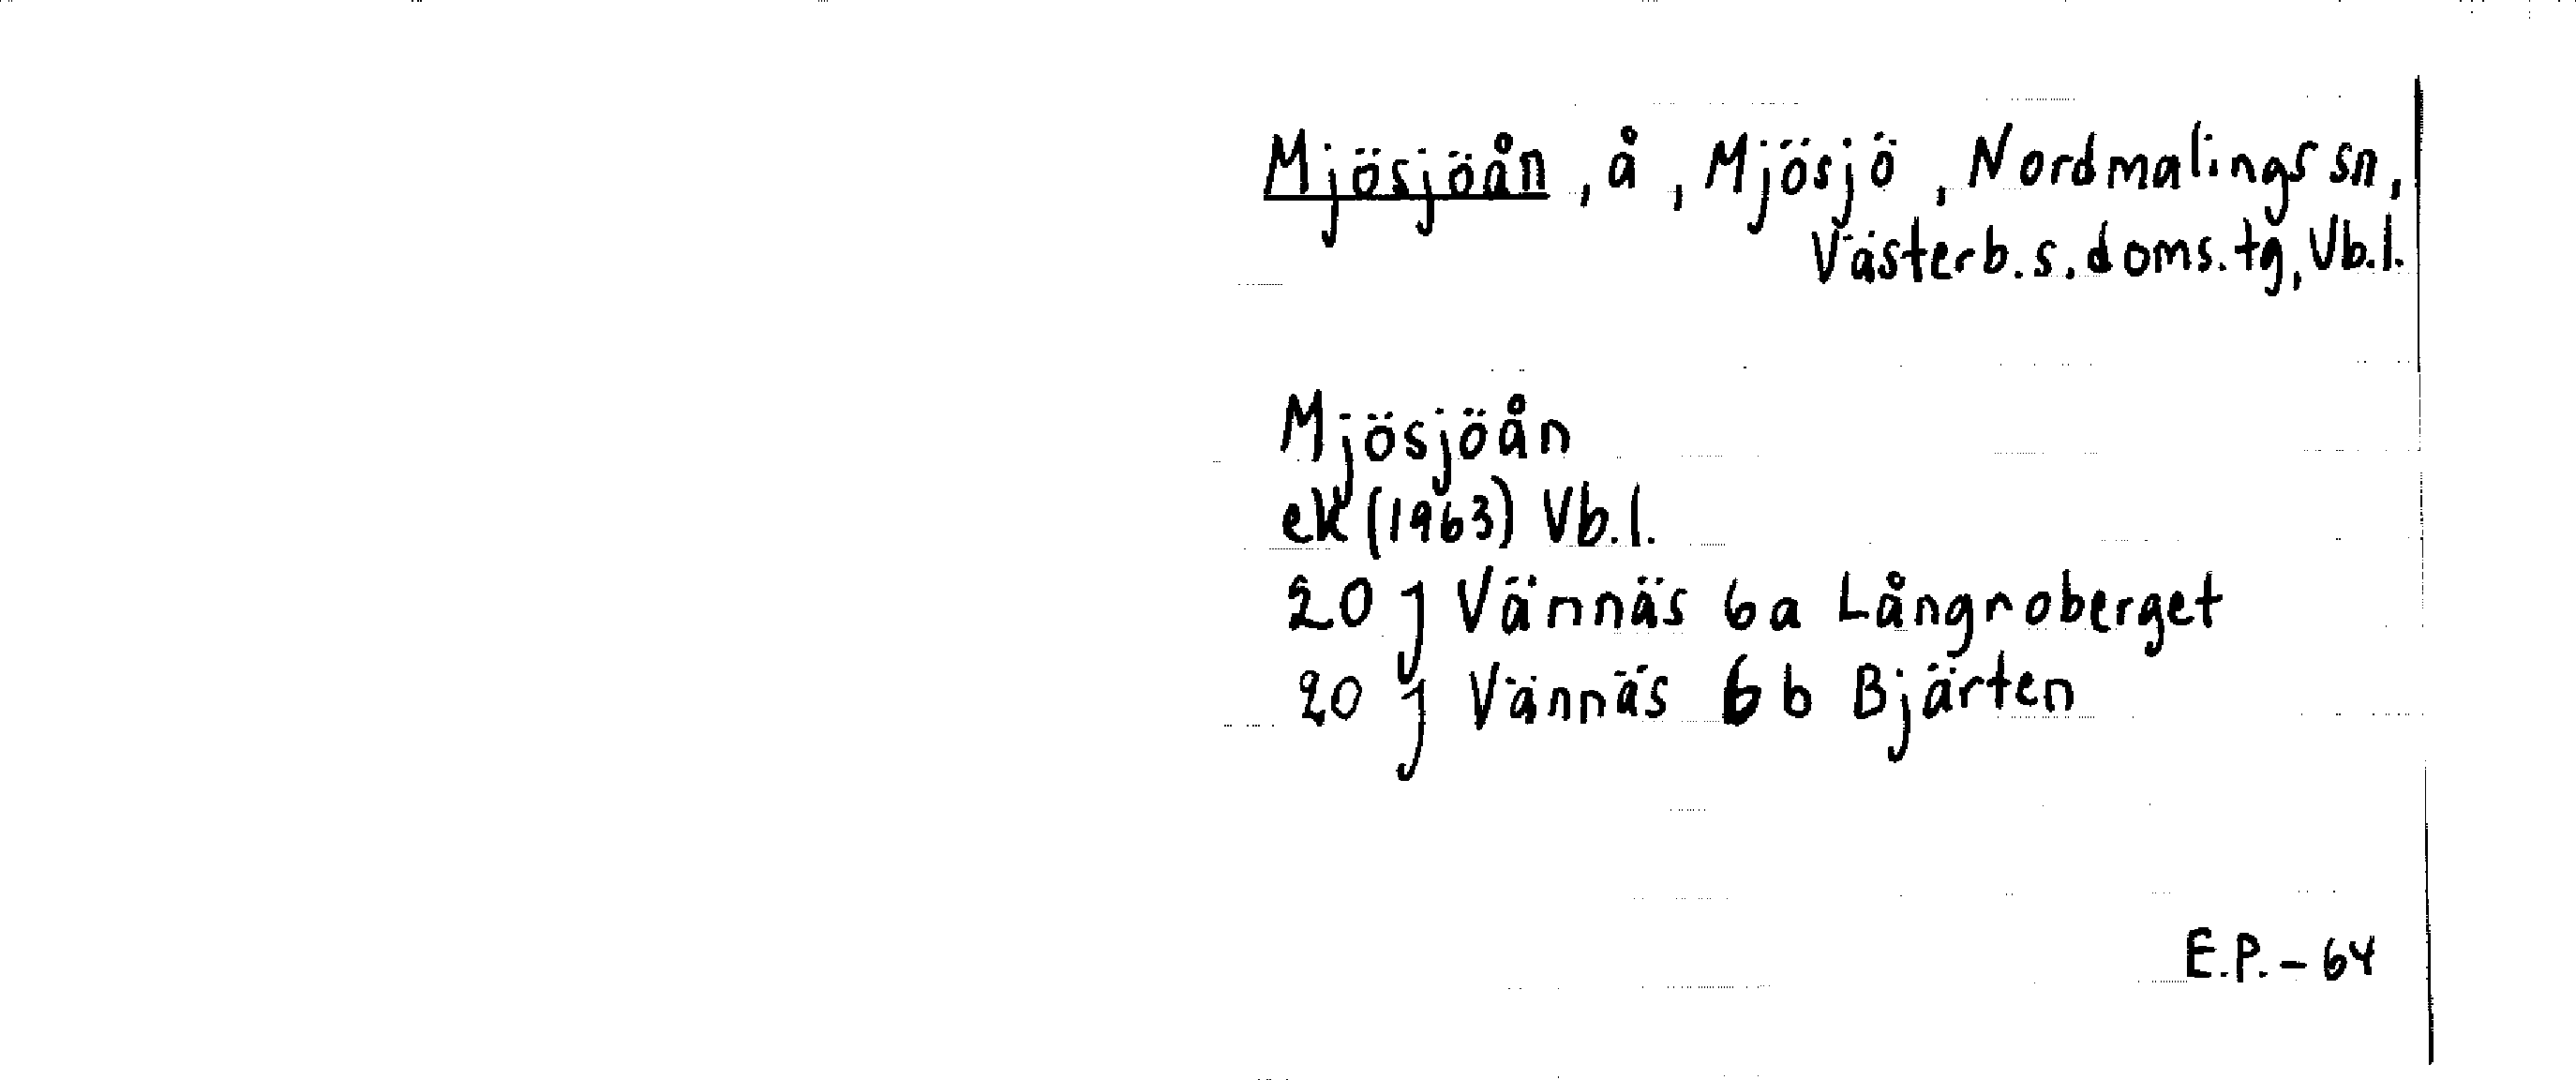 Mjösjöån, å, Mjösjö, Nordmalings sn,
Västerb.s.doms.tg, Vb.l.
Mjösjöån
ek (1963) Vb.l.
20 J Vännäs 6a Långroberget
20 J Vännäs 6b Bjärten
E.P.-64